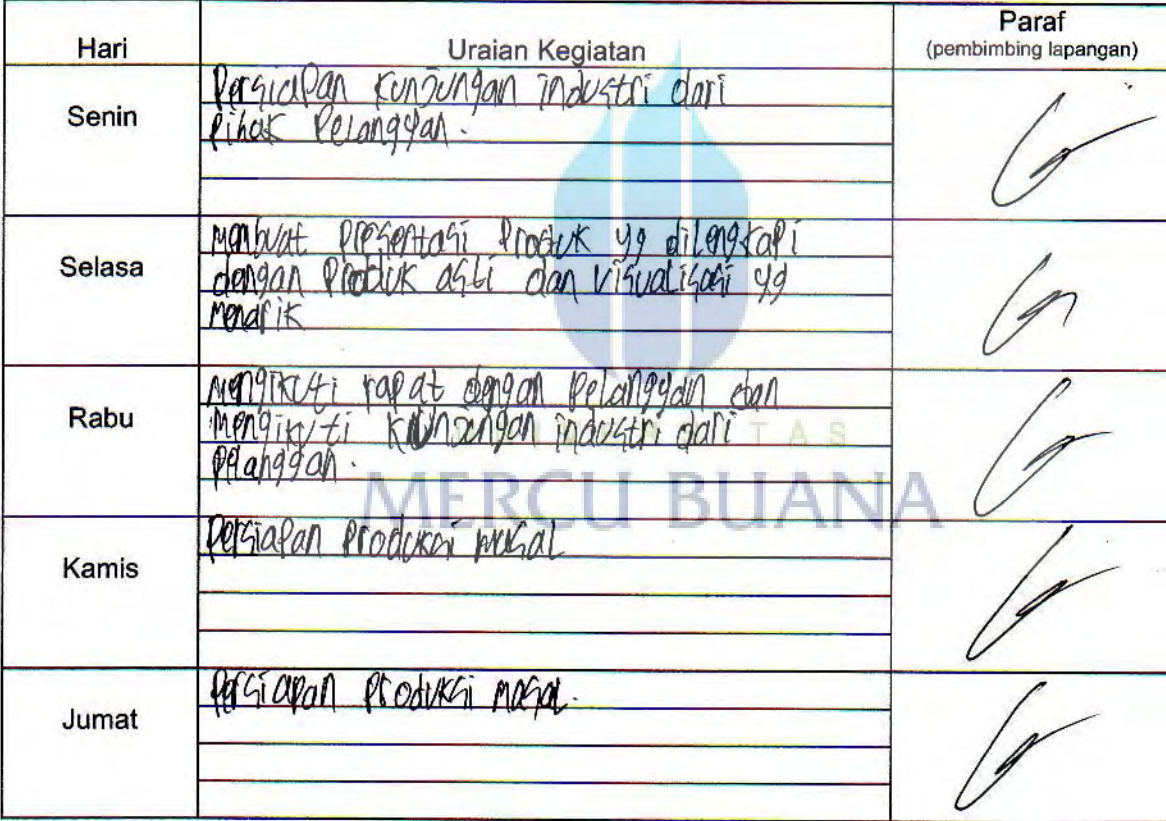 Hari Uraian Kegiatan Paraf
(pembimbing lapangan)
Senin
Persiapan kunjungan industri dari
pihak pelanggan.
Selasa
membuat presentasi produk yg dilengkapi
dengan produk asli dan visualisasi yg
menarik
Rabu
mengikuti rapat dengan pelanggan dan
mengikuti kunjungan industri dari
pelanggan.
MERCU BUANA
Kamis
persiapan produksi masal
Jumat
persiapan produksi masal.